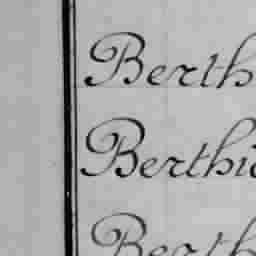 Berth
Berthi
Berth